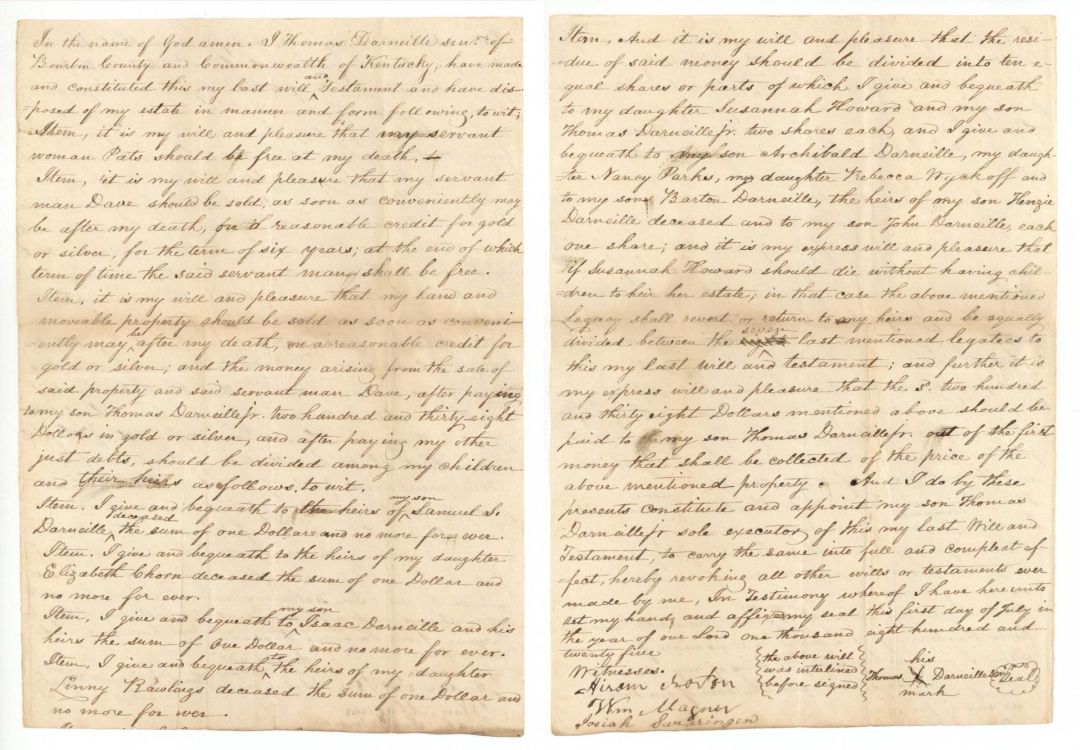 In the name of God amen. I Thomas Darneille senr. of
Bourbon County and Commonwealth of Kentucky, have made
and constituted this my last will and Testament and have dis-
=posed of my estate in manner and form following, to wit;
Item, it is my will and pleasure that my servant
woman Pats should be free at my death,
Item, it is my will and pleasure that my servant
man Dave should be sold, as soon as conveniently may
be after my death, on a reasonable credit for gold
or silver, for the term of six years; at the end of which
term of time the said servant man shall be free.
Item, it is my will and pleasure that my land and
moveable property should be sold as soon as conveni-
=ently may be after my death, on a reasonable credit for
gold or silver; and the money arising from the sale of
said property and said servant man Dave, after paying
to my son Thomas Darneille jr. two hundred and thirty eight
Dollars in gold or silver, and after paying my other
just debts, should be divided among my children
and their heirs as follows. to wit.
Item. I give and bequeath to the heirs of my son Samuel S.
Darneille deceased the sum of one Dollar and no more for ever.
Item. I give and bequeath to the heirs of my daughter
Elizabeth Chorn deceased the sum of one Dollar and
no more for ever.
Item, I give and bequeath to my son Isaac Darneille and his
heirs the sum of one Dollar and no more for ever.
Item, I give and bequeath to the heirs of my daughter
Linny Rawlings deceased the sum of one Dollar and
no more for ever.
Item, And it is my will and pleasure that the resi-
=due of said money should be divided into ten e-
qual shares or parts of which I give and bequeath
to my daughter Susannah Howard and my son
Thomas Darneille Jr. two shares each, and I give and
bequeath to my son Archibald Darneille, my daugh-
ter Nancy Parks, my daughter Rebecca Wyckoff and
to my son Barton Darneille, the heirs of my son Henzie
Darneille deceased and to my son John Darneille, each
one share; and it is my express will and pleasure that
if Susannah Howard should die without having chil-
=dren to heir her estate; in that case the above mentioned
Legacy shall revert or return to my heirs and be equally
divided between the seven last mentioned legatees to
this my last will and testament; and further it is
my express will and pleasure that the sd. two hundred
and thirty eight Dollars mentioned above should be
paid to my son Thomas Darneille jr. out of the first
money that shall be collected of the price of the
above mentioned property. And I do by these
presents constitute and appoint my son Thomas
Darneille jr sole executor of this my last Will and
Testament, to carry the same into full and compleat ef-
=fect, hereby revoking all other wills or testaments ever
made by me, In Testimony whereof I have here unto
set my hand and affix my seal this first day of July in
the year of our Lord one thousand eight hundred and
twenty five
Witnesses.
the above will
was interlined
before signed
his
Thomas X Darneille Senr
mark
Seal
Hiram
Wm Magner
Josiah Swearingen